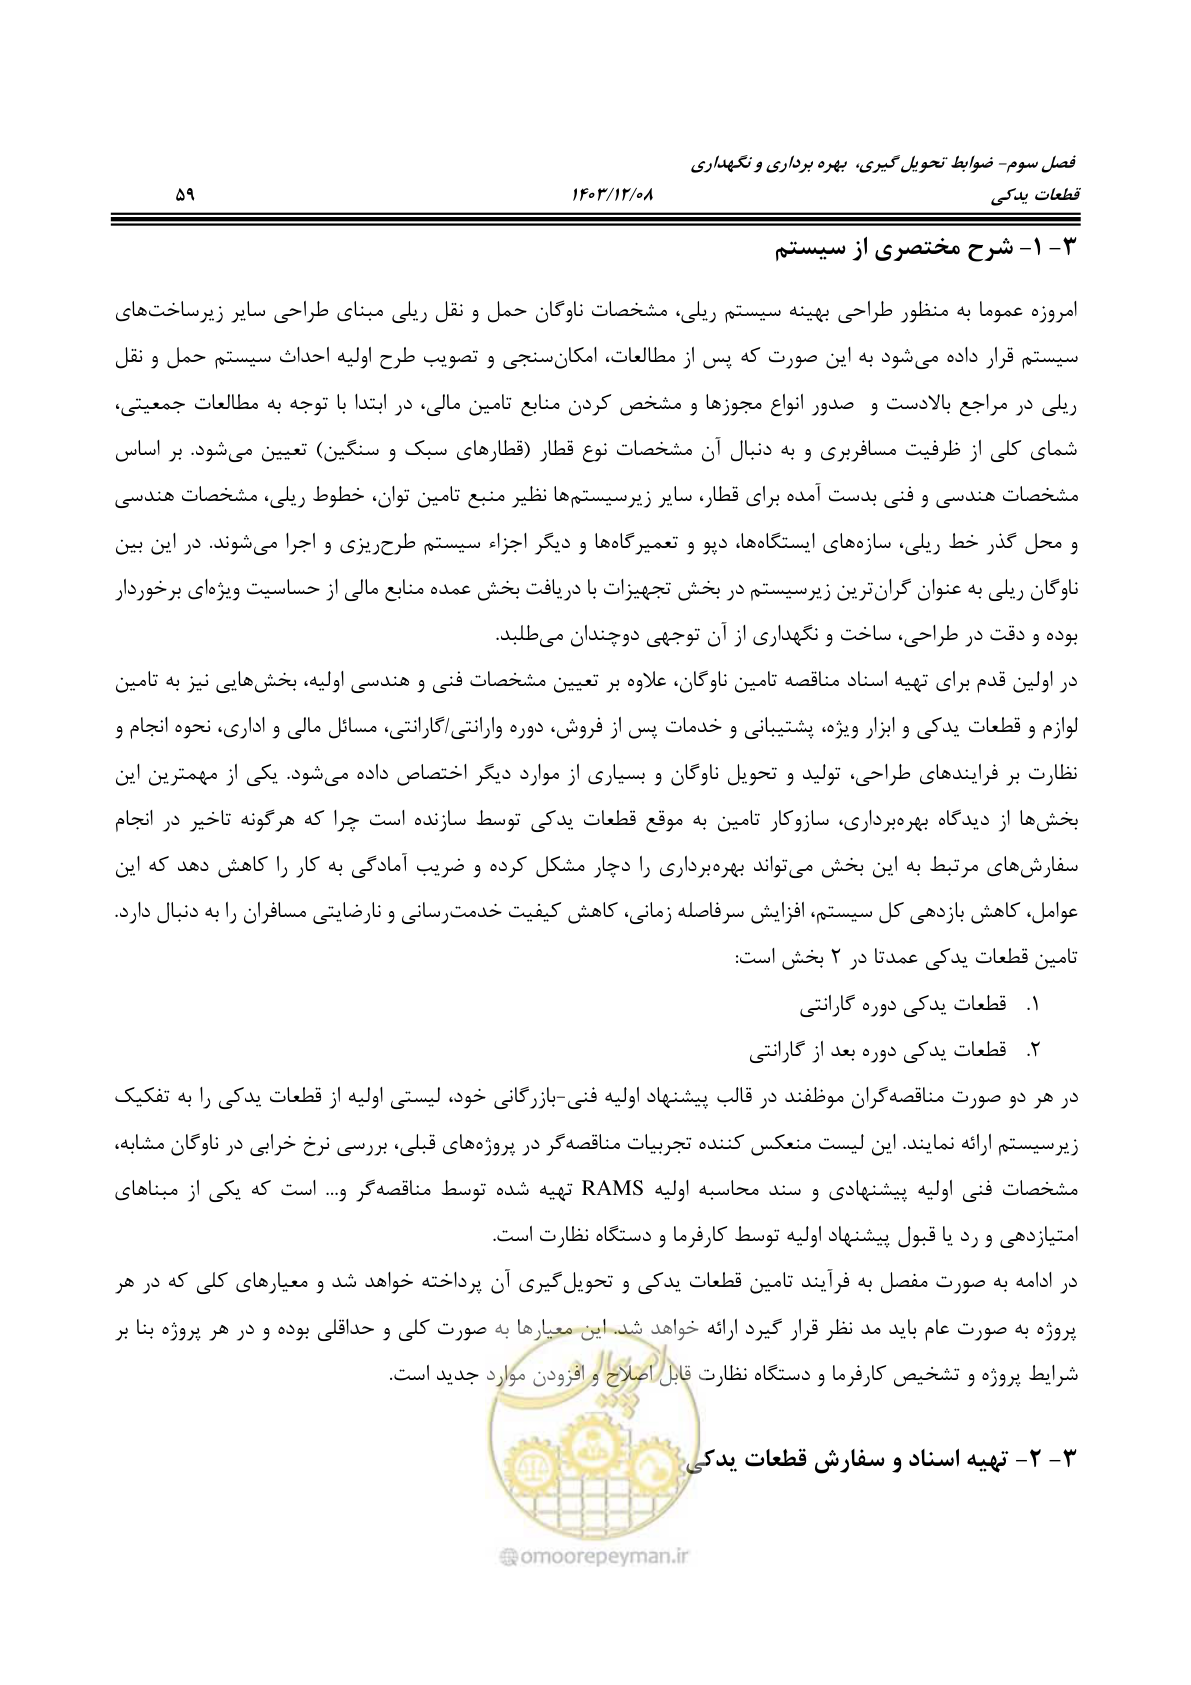 فصل سوم- ضوابط تحویل گیری، بهره برداری و نگهداری
قطعات یدکی ۱۴۰۳/۱۲/۰۸ ۵۹
۳- ۱- شرح مختصری از سیستم
امروزه عموما به منظور طراحی بهینه سیستم ریلی، مشخصات ناوگان حمل و نقل ریلی مبنای طراحی سایر زیرساخت‌های
سیستم قرار داده می‌شود به این صورت که پس از مطالعات، امکان‌سنجی و تصویب طرح اولیه احداث سیستم حمل و نقل
ریلی در مراجع بالادست و صدور انواع مجوزها و مشخص کردن منابع تامین مالی، در ابتدا با توجه به مطالعات جمعیتی،
شمای کلی از ظرفیت مسافربری و به دنبال آن مشخصات نوع قطار (قطارهای سبک و سنگین) تعیین می‌شود. بر اساس
مشخصات هندسی و فنی بدست آمده برای قطار، سایر زیرسیستم‌ها نظیر منبع تامین توان، خطوط ریلی، مشخصات هندسی
و محل گذر خط ریلی، سازه‌های ایستگاه‌ها، دپو و تعمیرگاه‌ها و دیگر اجزاء سیستم طرح‌ریزی و اجرا می‌شوند. در این بین
ناوگان ریلی به عنوان گران‌ترین زیرسیستم در بخش تجهیزات با دریافت بخش عمده منابع مالی از حساسیت ویژه‌ای برخوردار
بوده و دقت در طراحی، ساخت و نگهداری از آن توجهی دوچندان می‌طلبد.
در اولین قدم برای تهیه اسناد مناقصه تامین ناوگان، علاوه بر تعیین مشخصات فنی و هندسی اولیه، بخش‌هایی نیز به تامین
لوازم و قطعات یدکی و ابزار ویژه، پشتیبانی و خدمات پس از فروش، دوره وارانتی/گارانتی، مسائل مالی و اداری، نحوه انجام و
نظارت بر فرایندهای طراحی، تولید و تحویل ناوگان و بسیاری از موارد دیگر اختصاص داده می‌شود. یکی از مهمترین این
بخش‌ها از دیدگاه بهره‌برداری، سازوکار تامین به موقع قطعات یدکی توسط سازنده است چرا که هرگونه تاخیر در انجام
سفارش‌های مرتبط به این بخش می‌تواند بهره‌برداری را دچار مشکل کرده و ضریب آمادگی به کار را کاهش دهد که این
عوامل، کاهش بازدهی کل سیستم، افزایش سرفاصله زمانی، کاهش کیفیت خدمت‌رسانی و نارضایتی مسافران را به دنبال دارد.
تامین قطعات یدکی عمدتا در ۲ بخش است:
۱. قطعات یدکی دوره گارانتی
۲. قطعات یدکی دوره بعد از گارانتی
در هر دو صورت مناقصه‌گران موظفند در قالب پیشنهاد اولیه فنی-بازرگانی خود، لیستی اولیه از قطعات یدکی را به تفکیک
زیرسیستم ارائه نمایند. این لیست منعکس کننده تجربیات مناقصه‌گر در پروژه‌های قبلی، بررسی نرخ خرابی در ناوگان مشابه،
مشخصات فنی اولیه پیشنهادی و سند محاسبه اولیه RAMS تهیه شده توسط مناقصه‌گر و... است که یکی از مبناهای
امتیازدهی و رد یا قبول پیشنهاد اولیه توسط کارفرما و دستگاه نظارت است.
در ادامه به صورت مفصل به فرآیند تامین قطعات یدکی و تحویل‌گیری آن پرداخته خواهد شد و معیارهای کلی که در هر
پروژه به صورت عام باید مد نظر قرار گیرد ارائه خواهد شد. این معیارها به صورت کلی و حداقلی بوده و در هر پروژه بنا بر
شرایط پروژه و تشخیص کارفرما و دستگاه نظارت قابل اصلاح و افزودن موارد جدید است.
امور پیمان
۳- ۲- تهیه اسناد و سفارش قطعات یدکی
@omoorepeyman.ir